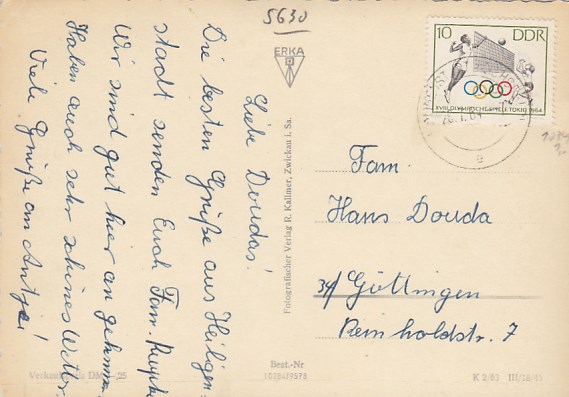 5630
Liebe Doudas!
Die besten Grüße aus Heiligen-
stadt senden Euch Fam.
Wir sind gut hier an gekommen.
Haben auch sehr schönes Wetter.
Viele Grüße an Antje!
ERKA
Fotografischer Verlag R. Kallmer, Zwickau i. Sa.
10 DDR
XVIII. OLYMPISCHE SPIELE TOKIO 1964
Fam.
Hans Douda
34 Göttingen
Reinholdstr. 7
Best.-Nr
K 2/63 III/26/13